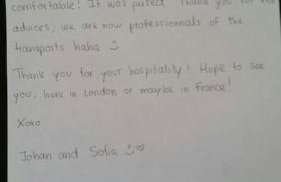 comfortable! It was perfect. Thank you for
advices, we are now professionnals of the
transports haha
Thank you for your hospitality! Hope to see
you, here in London or maybe in France!
Xoxo
Johan and Sofia